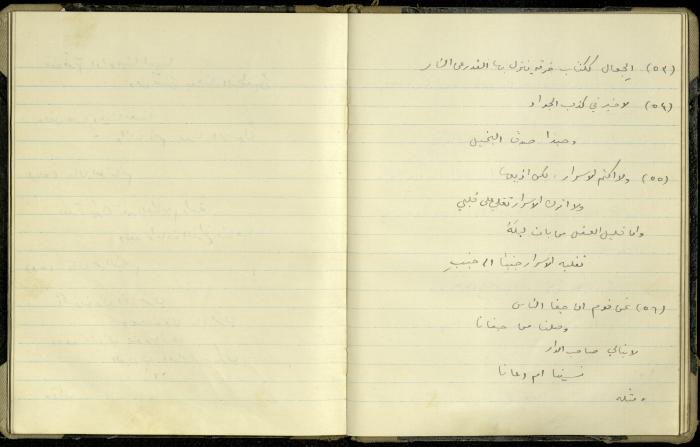 (٥٣) الجعال ككتاب خرقة ينزل بها القدر عن النار
(٥٤) لا خير في كذب الجواد
وحبذا صدق البخيل
(٥٥) ولا اكتم الاسرار لكن اذيعها
ولا اترك الاسرار تغلي على قلبي
وان قليل العقل من بات ليلة
تقلبه الاسرار جنبا الى جنب
(٥٦) نحن قوم ان جفا الناس
وصلنا من جفانا
لا نبالي صاحب الدار
نسينا ام دعانا
ومثله